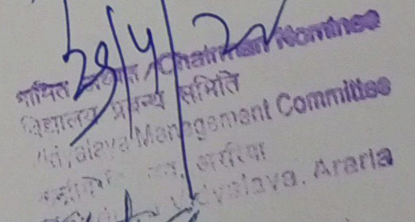 28/4/22
नामित अध्यक्ष / Chairman Nominee
विद्यालय प्रबन्ध समिति
Vidyalaya Management Committee
अररिया
Vidyalaya, Araria